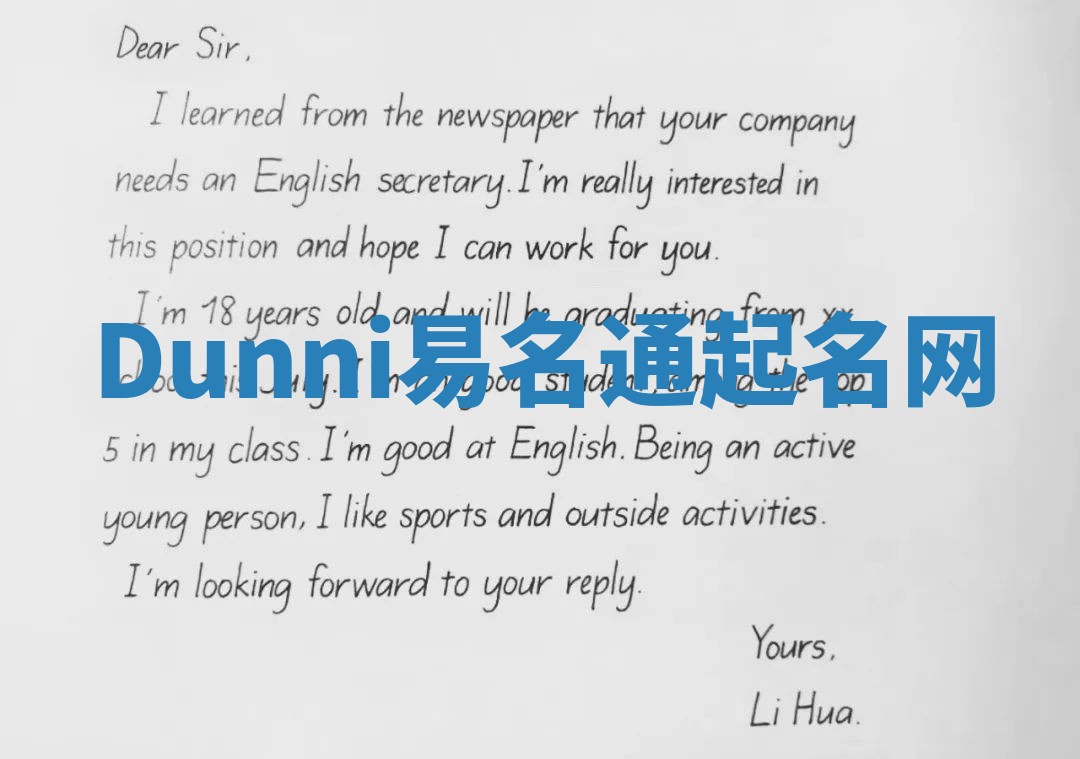 Dear Sir,
I learned from the newspaper that your company
needs an English secretary. I'm really interested in
this position and hope I can work for you.
I'm 18 years old and will be graduating from xx
Dunni易名通起名网
this July. I'm good student, among the top
5 in my class. I'm good at English. Being an active
young person, I like sports and outside activities.
I'm looking forward to your reply.
Yours,
Li Hua.